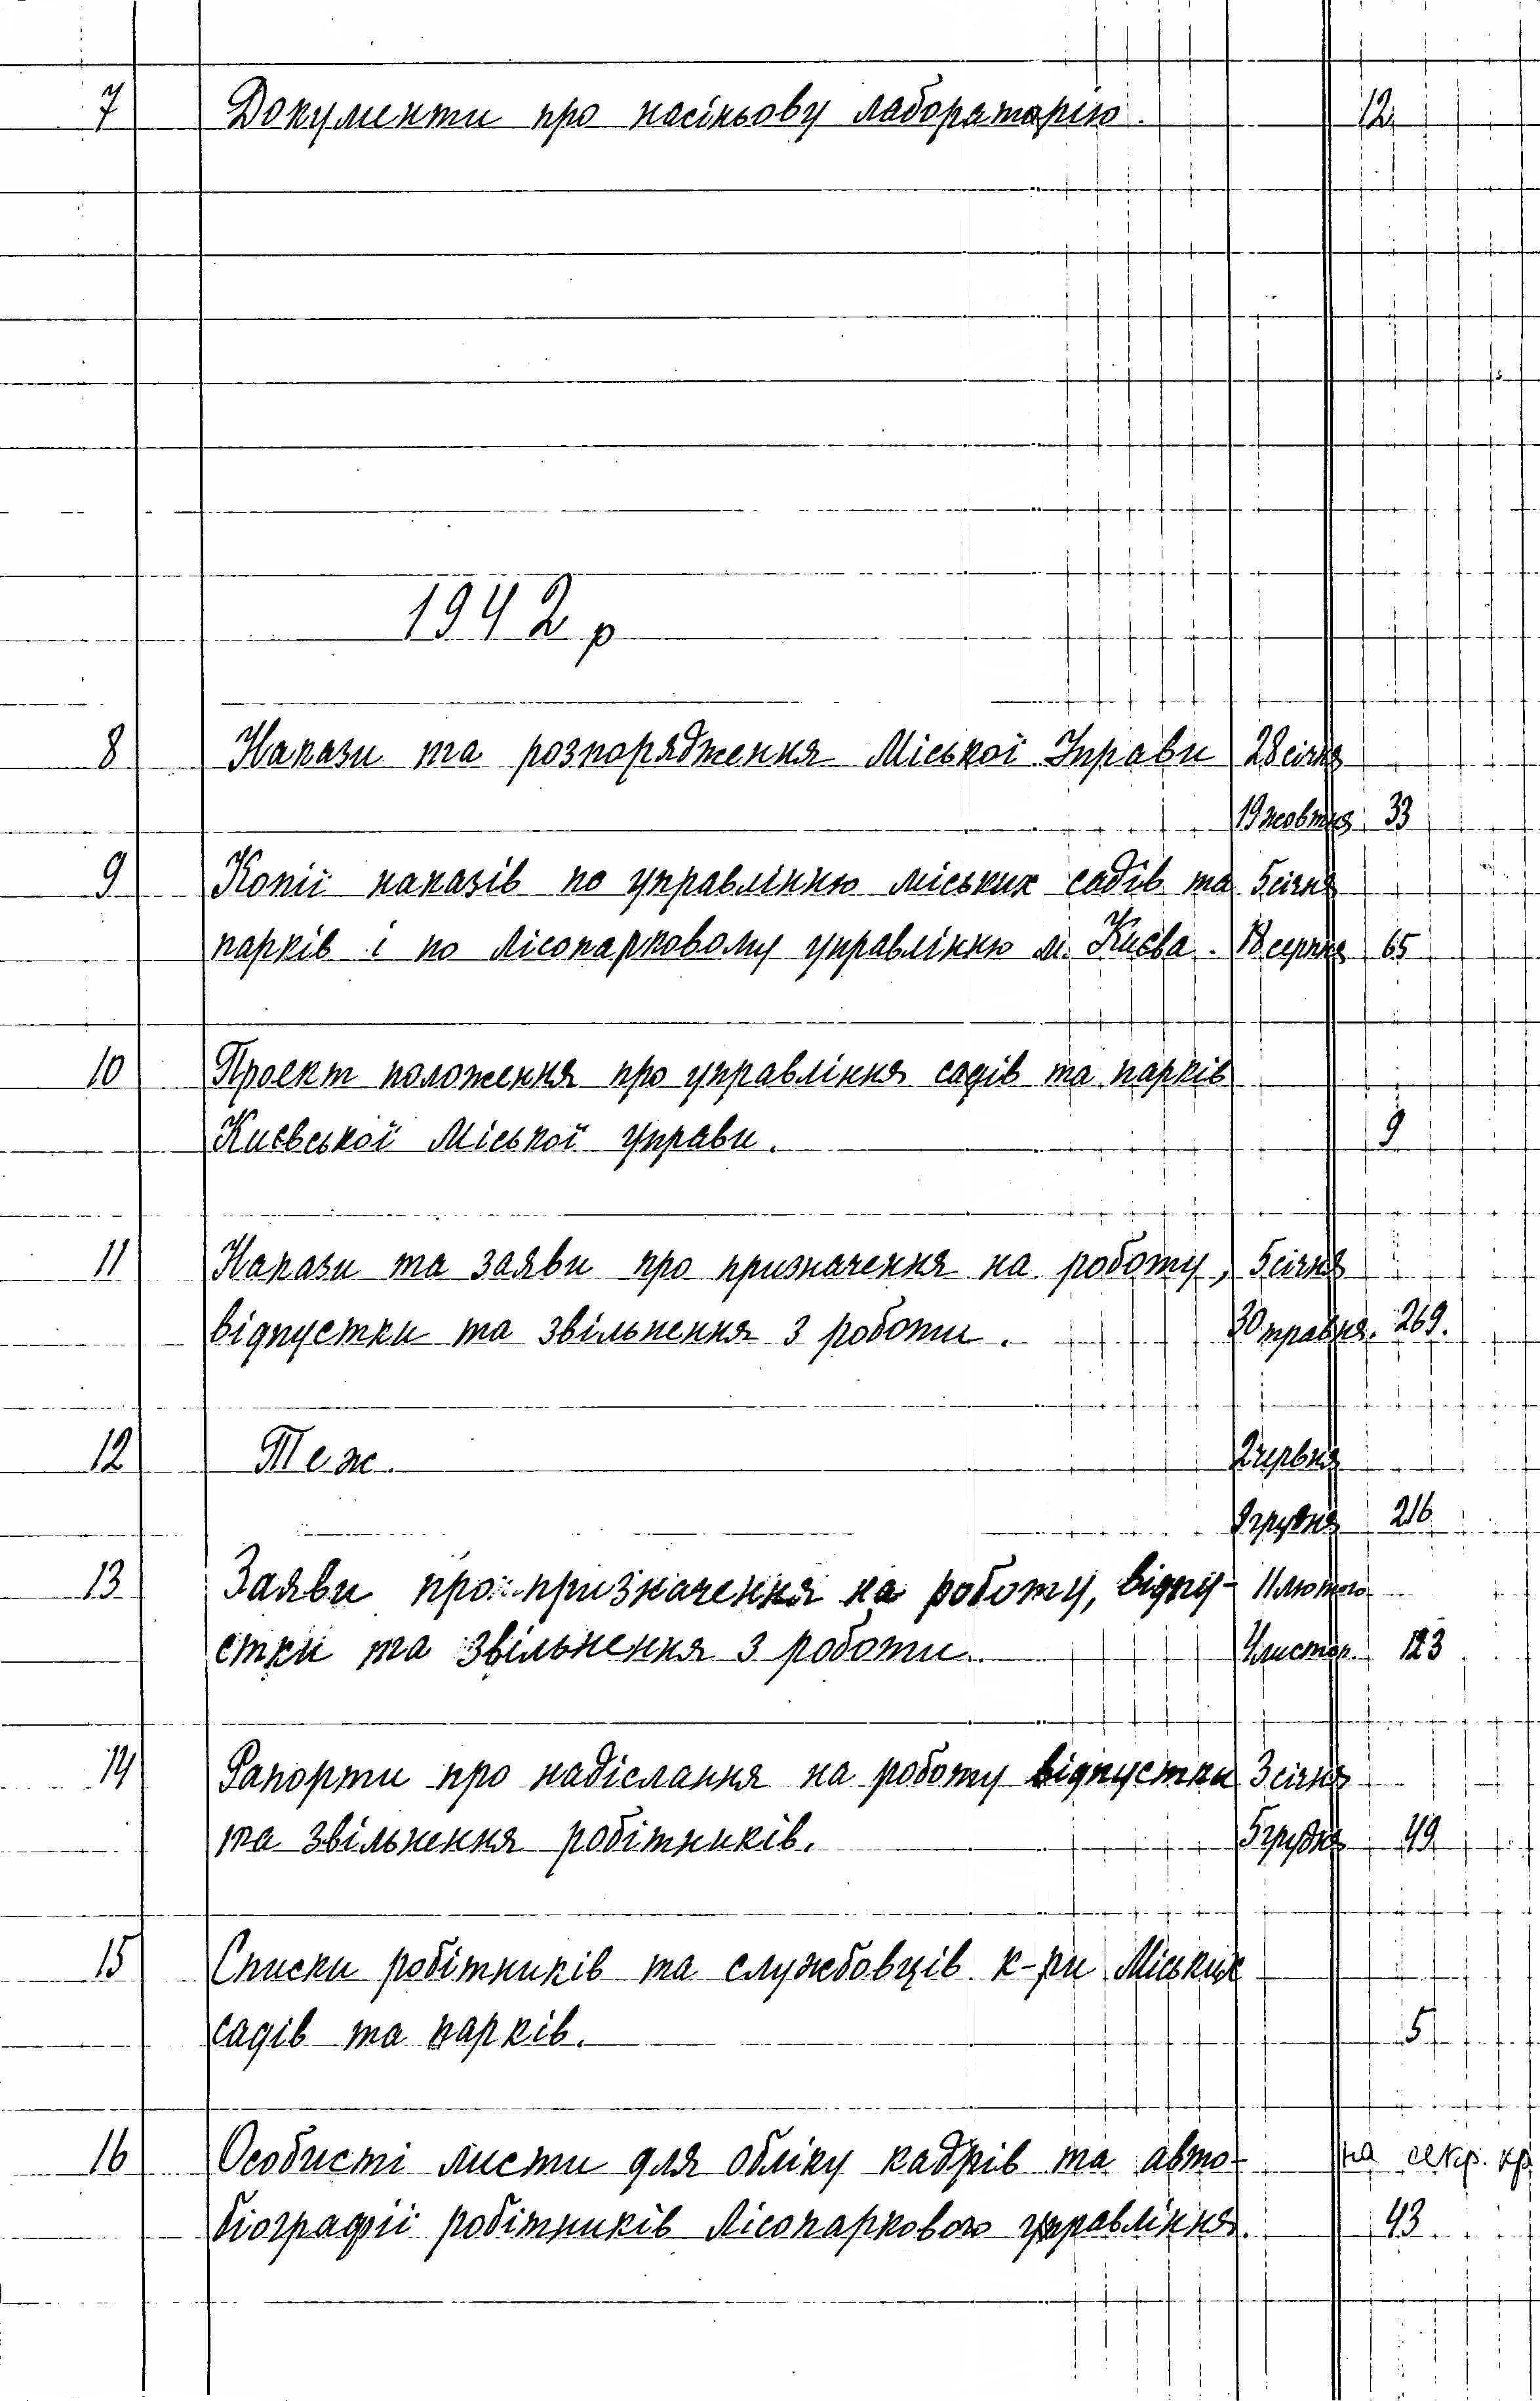 7 Документи про насіньову лабораторію. 12
1942 р
8 Накази та розпорядження Міської Управи 28 січня
19 жовтня 33
9 Копії наказів по управлінню міських садів та 5 січня
парків і по лісопарковому управлінню м. Києва. 18 серпня 65
10 Проект положення про управління садів та парків
Києвської Міської управи. 9
11 Накази та заяви про призначення на роботу, 5 січня
відпустки та звільнення з роботи. 30 травня. 269.
12 Теж. 2 червня
9 грудня 216
13 Заяви про призначення на роботу, відпу- 11 лютого
стки та звільнення з роботи. листоп. 123
14 Рапорти про надіслання на роботу відпустки 3 січня
та звільнення робітників. 5 грудня 49
15 Списки робітників та службовців к-ри Міських
садів та парків. 5
16 Особисті листи для обліку кадрів та авто- на секр. хр.
біографії робітників Лісопаркового управління. 43